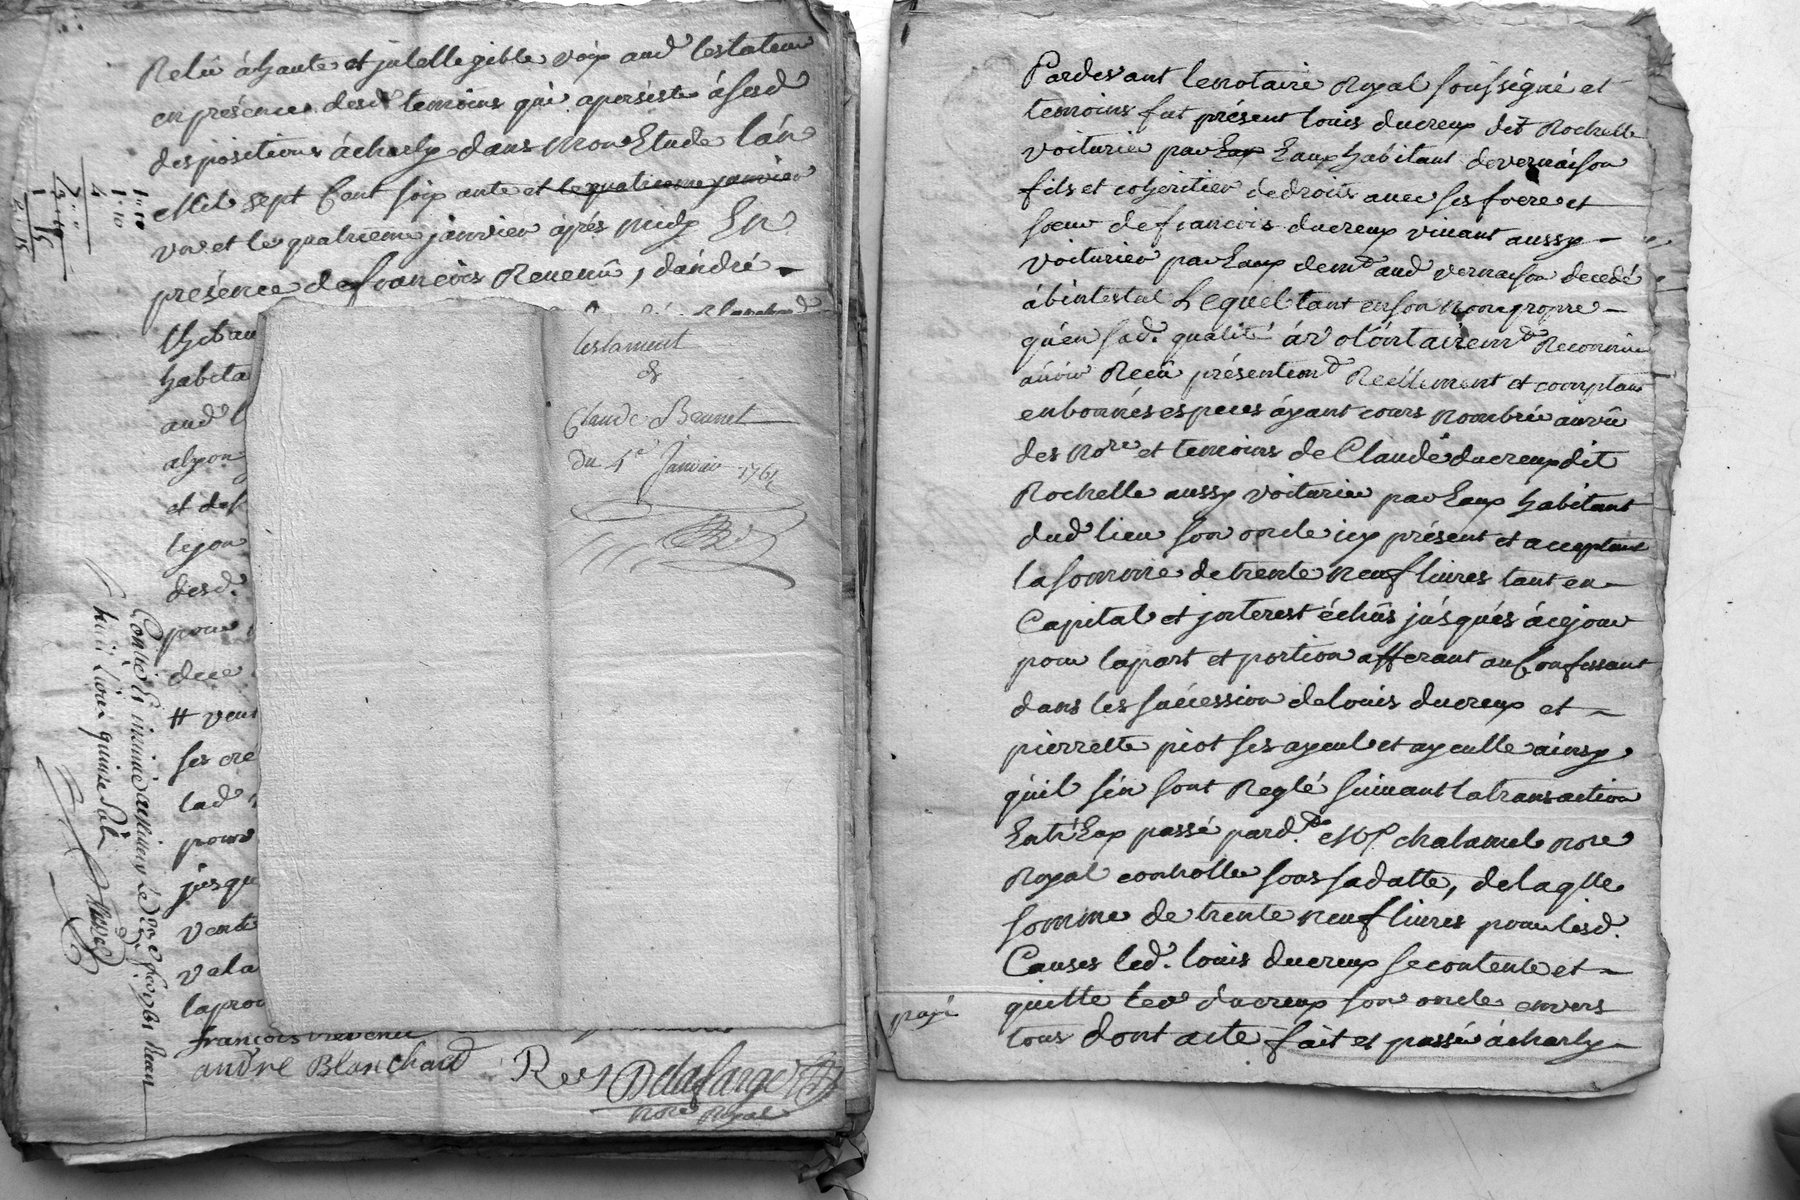 Relû à haute et jntellegible voix aud testateur
en présence desd temoins qui a persisté à sesd
dispositions à charly dans mon Etude l'an
Mil sept Cent soixante et le quatrieme janvier
un et le quatrieme janvier après midy En
présence de francois Revenû, d'andré
thibau
habita
aud
et de
desd.
pour
# veu
ses cre
lad
pour
jusqu
vente
vala
la pro
francois revenu
andre Blanchard
Rey Delafarge
Nore Royal
Testament
de
Claude Bennet
du 4e Janvier 1761
huit livres quinze sols
1..10
1..10
4
Pardevant le notaire Royal soussigné et
temoins fut présent louis ducreux dit Rochelle
voiturier par Eaux Eaux habitant de vernaison
fils et coheritier de droits avec ses frere et
soeur de francois ducreux vivant aussy
voiturier par Eaux demt aud vernaison decedé
abintestat Lequel tant en son nom propre
qu'en sad. qualité a volontairemt Reconnu
avoir Receû présentemt Reellement et comptant
en bonnes especes ayant cours nombrée au vû
des Nore et temoins de Claude ducreux dit
Rochelle aussy voiturier par Eaux habitant
dud lieu son oncle icy présent et acceptant
la somme de trente neuf livres tant en
Capital et jnterest échûs jusqués à ce jour
pour la part et portion afferant au Confessant
dans les sucession de louis ducreux et
pierrette piot ses ayeul et ayeulle ainsy
qu'il s'en sont Reglé suivant la transaction
Entr'Eux passé pard. Me chalamel nore
Royal controlle sous sa datte, de laqlle
somme de trente neuf livres pour lesd.
Causes led. louis ducreux se contente et
quitte led ducreux son oncle envers
tous dont acte fait et passé à charly
payé